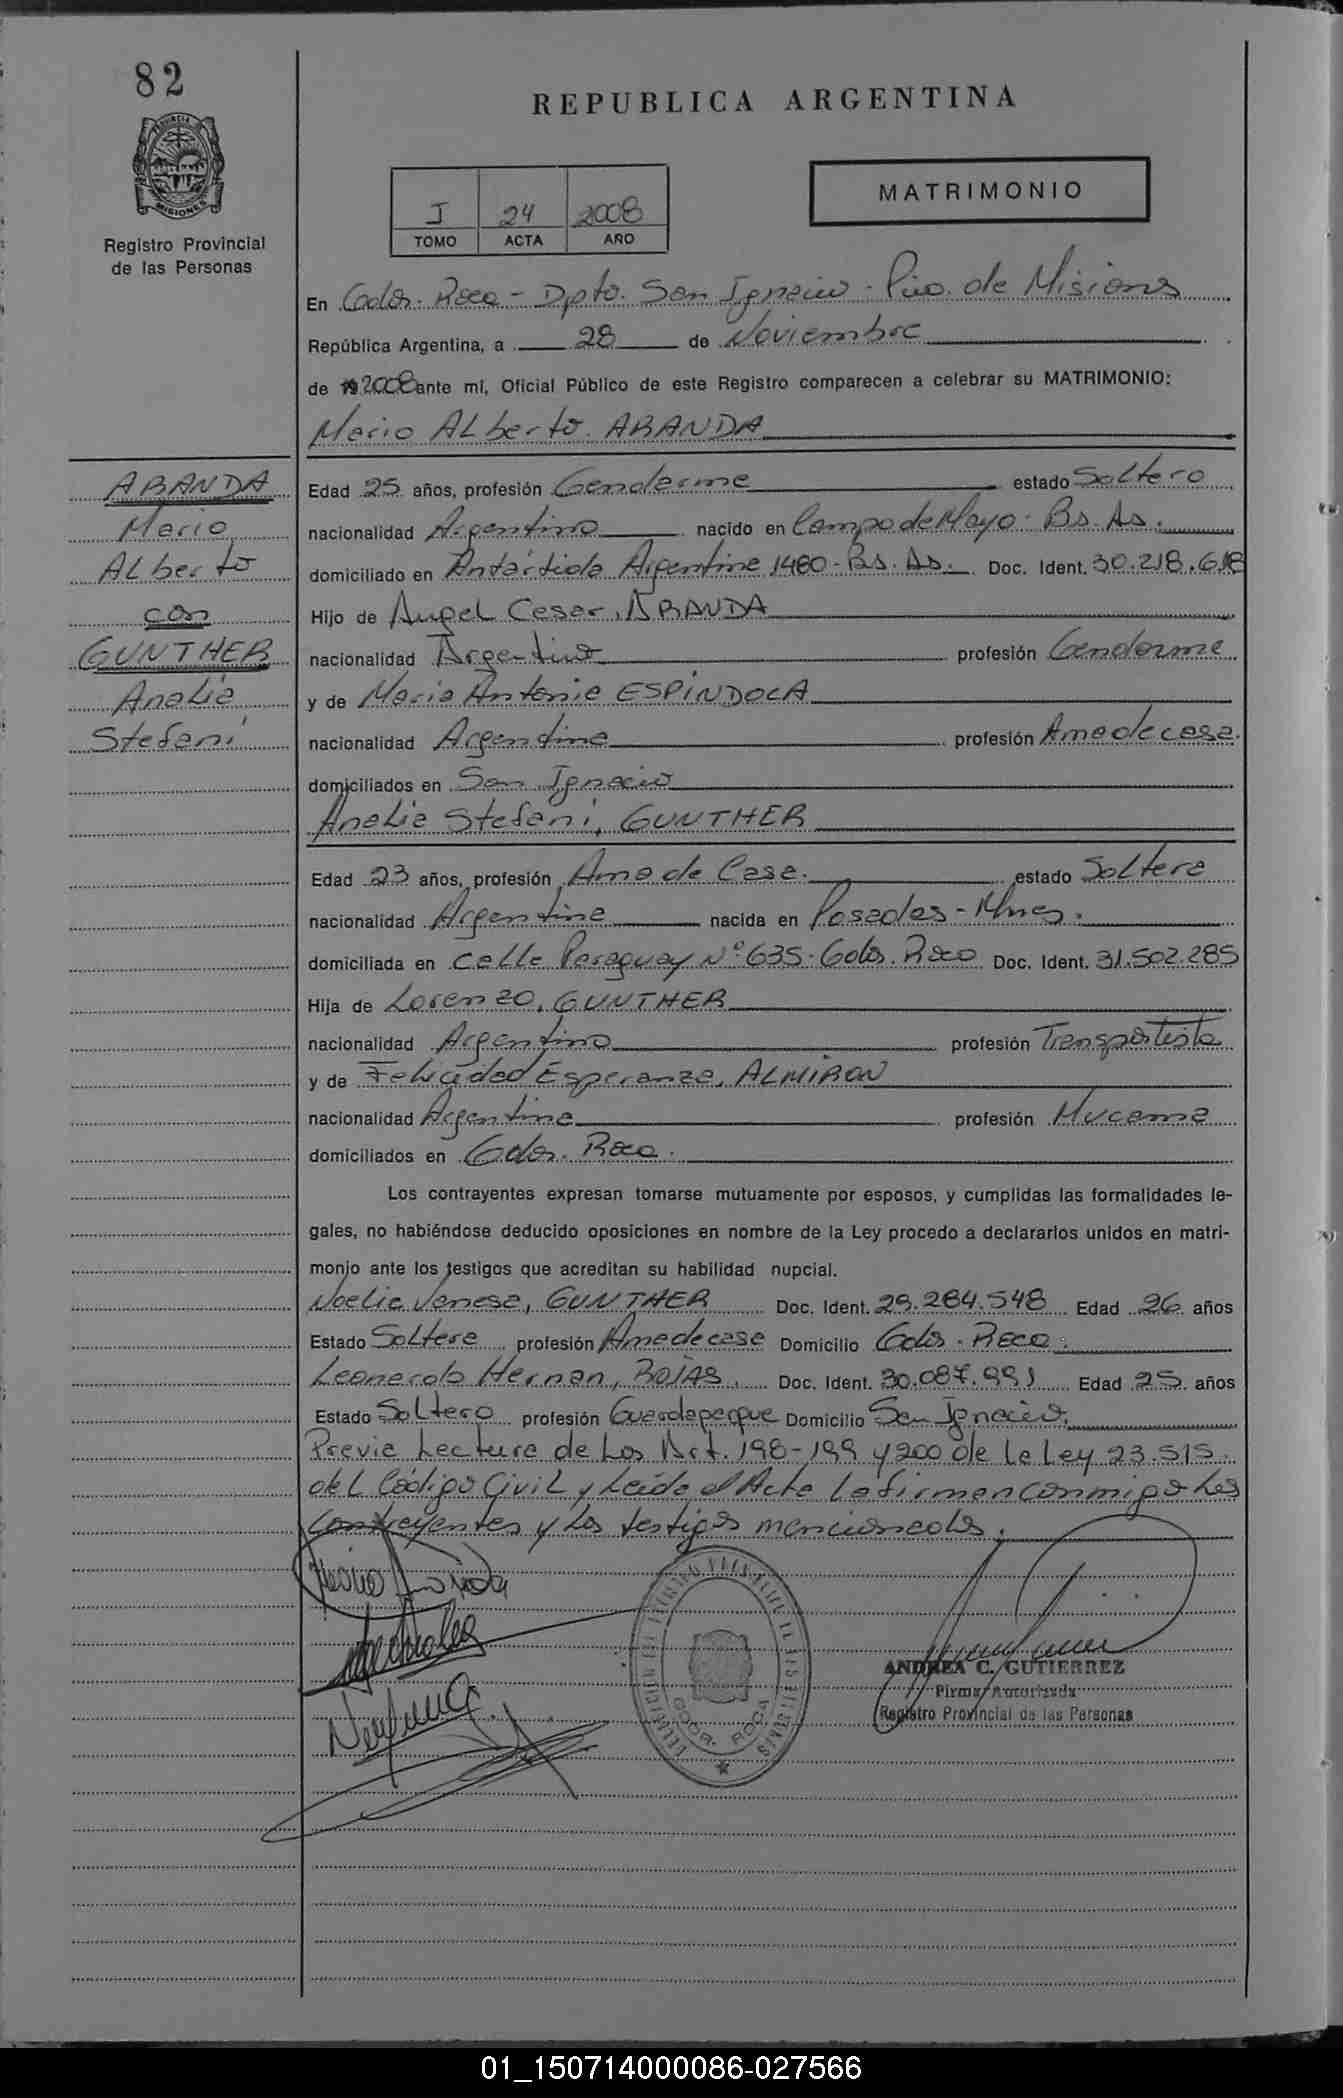 82
REPUBLICA ARGENTINA
PROVINCIA
MISIONES
Registro Provincial
de las Personas
I 24 2008
TOMO ACTA AÑO
MATRIMONIO
En Gdor. Roca - Dpto. San Ignacio - Pcia. de Misiones
República Argentina, a 28 de Noviembre
de 19 2008 ante mí, Oficial Público de este Registro comparecen a celebrar su MATRIMONIO:
Mario Alberto. ARANDA
ARANDA
Mario
Alberto
con
GUNTHER
Analia
Stefani
Edad 25 años, profesión Gendarme estado Soltero
nacionalidad Argentino nacido en Campo de Mayo - Bs. As.
domiciliado en Antártida Argentina 1480 - Bs. As. Doc. Ident. 30.218.618
Hijo de Angel Cesar, ARANDA
nacionalidad Argentino profesión Gendarme
y de Maria Antonia ESPINDOLA
nacionalidad Argentina profesión Ama de casa.
domiciliados en San Ignacio
Analia Stefani, GUNTHER
Edad 23 años, profesión Ama de Casa. estado Soltera
nacionalidad Argentina nacida en Posadas - Mnes.
domiciliada en calle Paraguay Nº 635 - Gdor. Roca Doc. Ident. 31.502.285
Hija de Lorenzo, GUNTHER
nacionalidad Argentino profesión Transportista
y de Felicidad Esperanza, ALMIRON
nacionalidad Argentina profesión Mucama
domiciliados en Gdor. Roca.
Los contrayentes expresan tomarse mutuamente por esposos, y cumplidas las formalidades le-
gales, no habiéndose deducido oposiciones en nombre de la Ley procedo a declararlos unidos en matri-
monio ante los testigos que acreditan su habilidad nupcial.
Noelia Vanesa, GUNTHER Doc. Ident. 29.284.548 Edad 26 años
Estado Soltera profesión Ama de casa Domicilio Gdor. Roca.
Leonardo Hernan, ROJAS, Doc. Ident. 30.087.991 Edad 25 años
Estado Soltero profesión Guardaparque Domicilio San Ignacio.
Previa Lectura de Los Art. 198-199 y 200 de la Ley 23.515
del Código Civil y Leída el Acta La firman conmigo Los
Contrayentes y Los testigos mencionados.
Mario Aranda
GDOR. ROCA
ANDREA C. GUTIERREZ
Firma Autorizada
Registro Provincial de las Personas
01_150714000086-027566